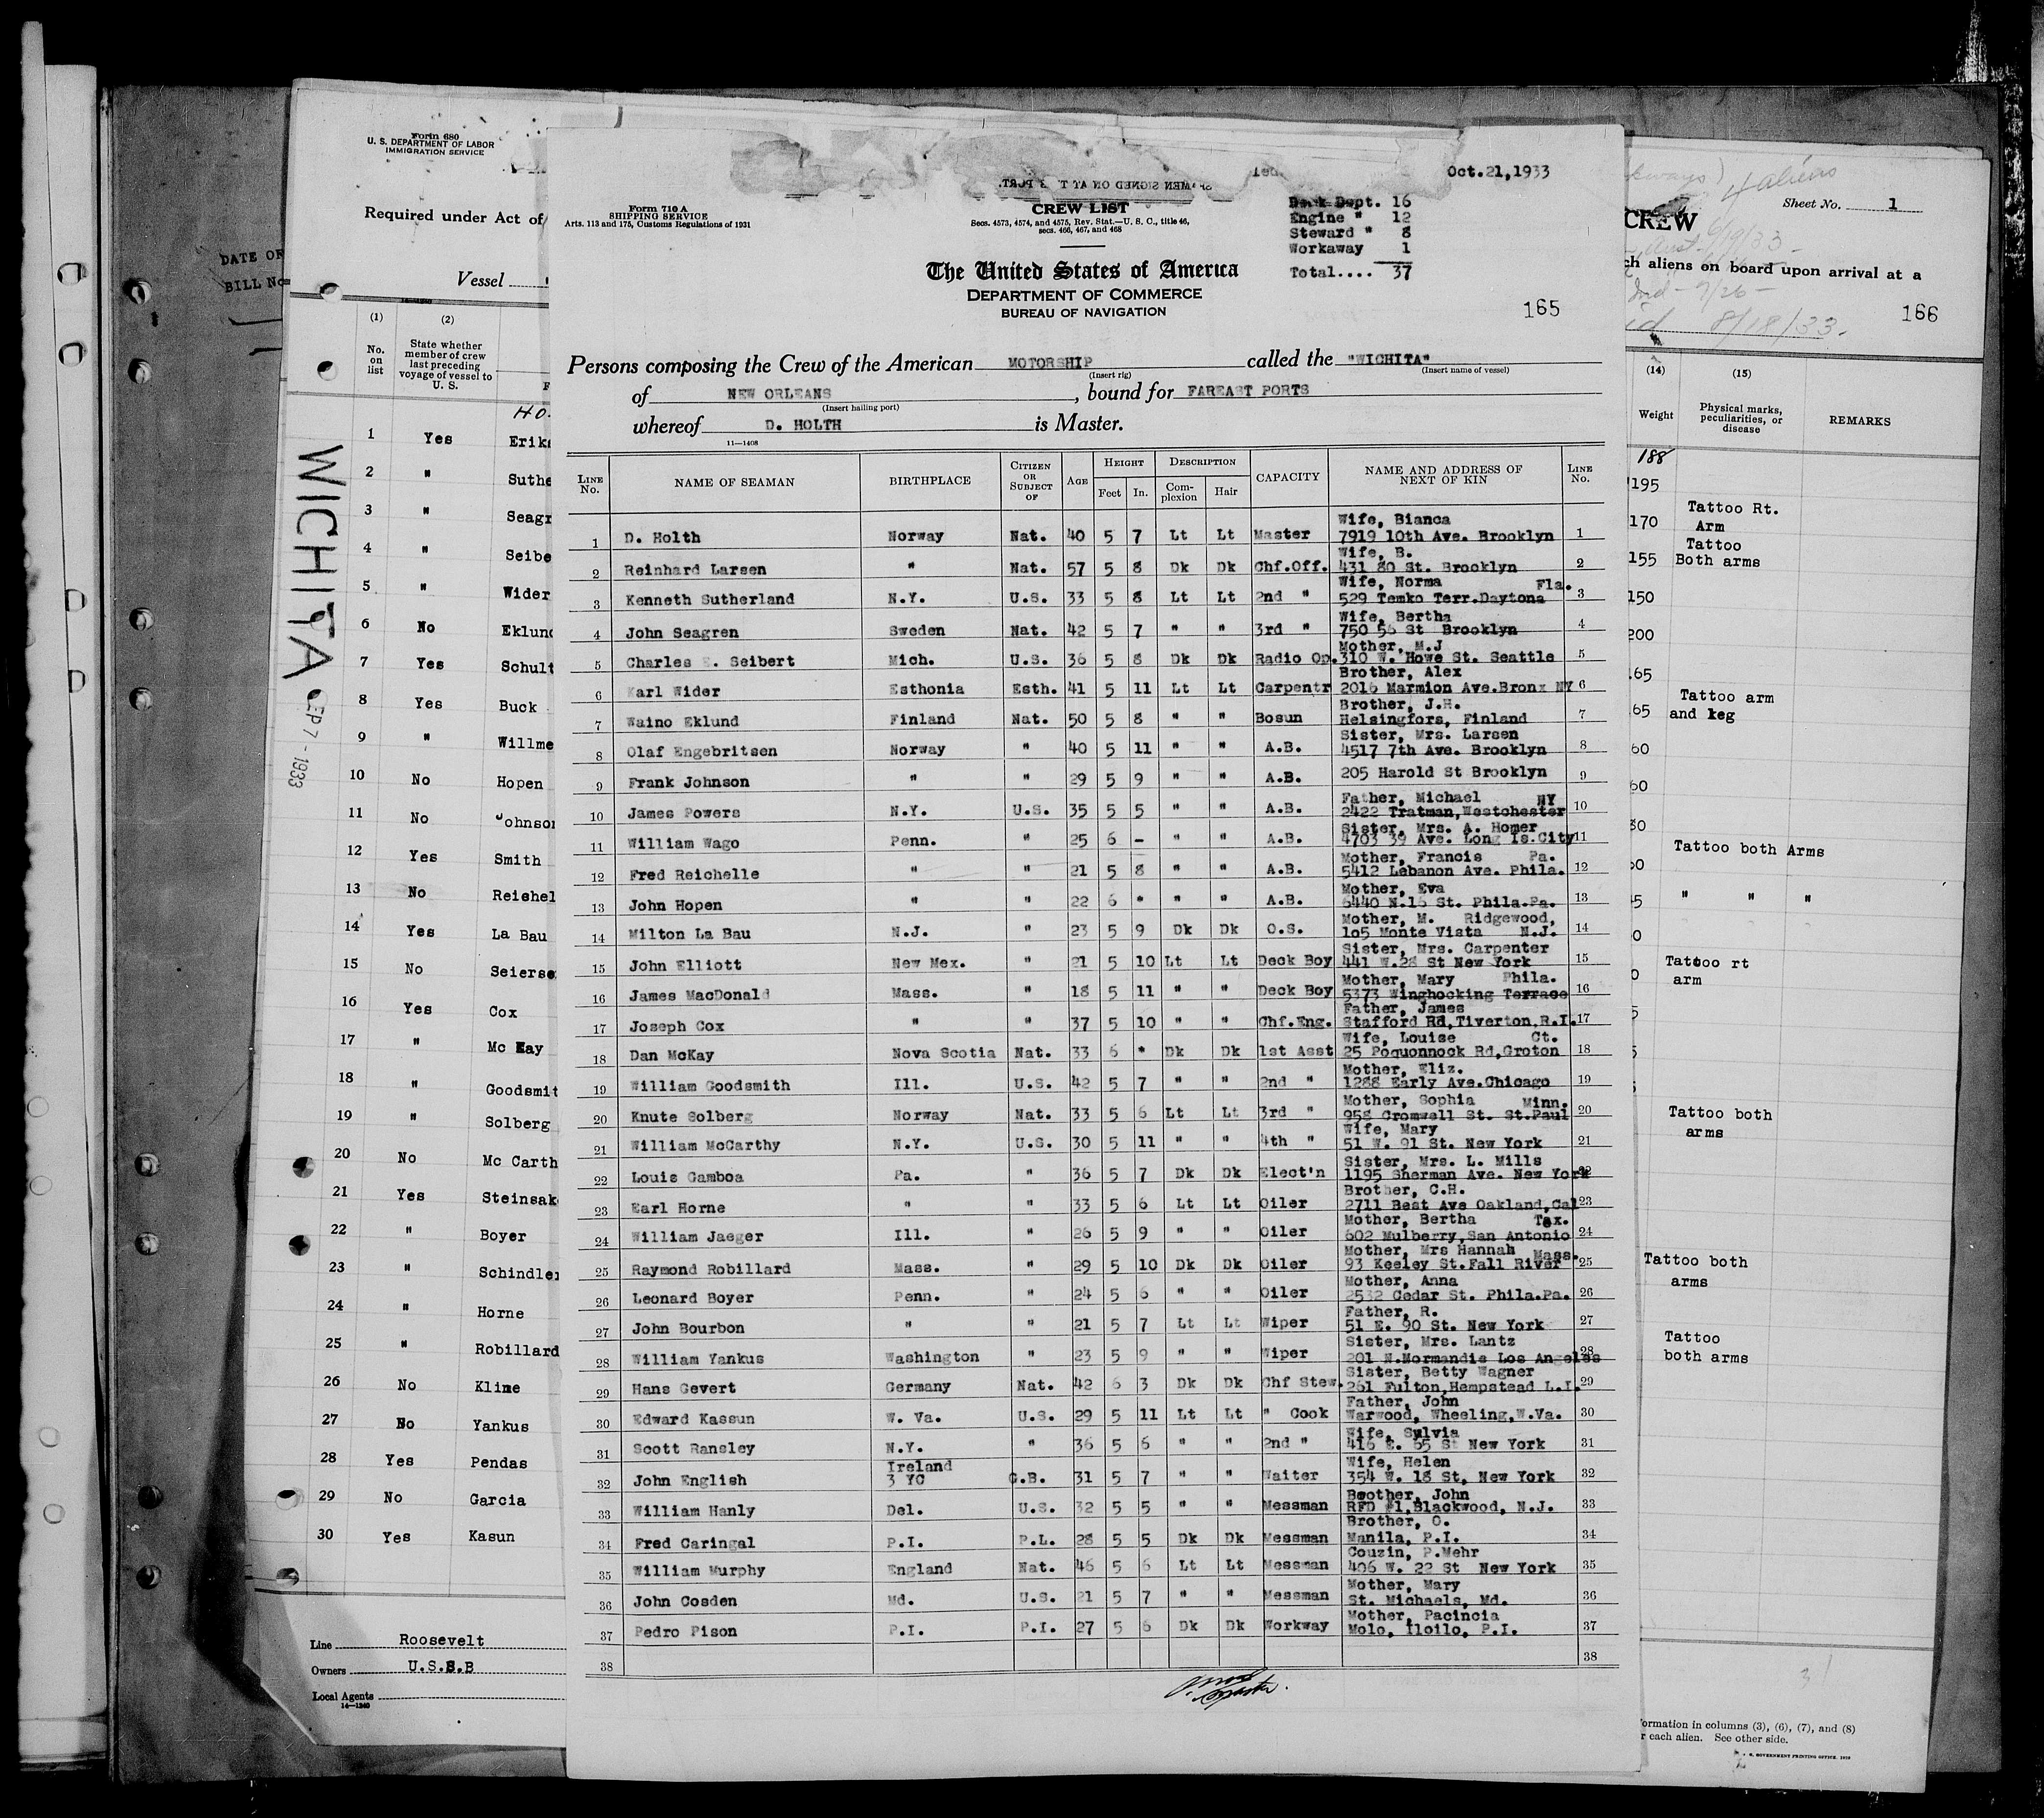 Form 680
U. S. DEPARTMENT OF LABOR
IMMIGRATION SERVICE
Required under Act of
Vessel
DATE OF
BILL No
(1) (2)
No. on list
State whether member of crew last preceding voyage of vessel to U. S.
1 Yes Eriks
2 " Suthe
3 " Seagr
4 " Seibe
5 " Wider
6 No Eklund
7 Yes Schult
8 Yes Buck
9 " Willme
10 No Hopen
11 No Johnson
12 Yes Smith
13 No Reishel
14 Yes La Bau
15 No Seierse
16 Yes Cox
17 " Mc Kay
18 " Goodsmit
19 " Solberg
20 No Mc Carth
21 Yes Steinsak
22 " Boyer
23 " Schindler
24 " Horne
25 " Robillard
26 No Kline
27 No Yankus
28 Yes Pendas
29 No Garcia
30 Yes Kasun
WICHITA
SEP 7 - 1933
Line Roosevelt
Owners U.S.S.B
Local Agents
14—1240
Oct.21,1933
Form 710 A
SHIPPING SERVICE
Arts. 113 and 175, Customs Regulations of 1931
CREW LIST
Secs. 4573, 4574, and 4575, Rev. Stat.—U. S. C., title 46,
secs. 466, 467, and 468
Deck Dept. 16
Engine " 12
Steward " 8
Workaway 1
Total.... 37
The United States of America
DEPARTMENT OF COMMERCE
BUREAU OF NAVIGATION
165
Persons composing the Crew of the American MOTORSHIP called the "WICHITA"
(Insert rig) (Insert name of vessel)
of NEW ORLEANS, bound for FAREAST PORTS
(Insert hailing port)
whereof D. HOLTH is Master.
11—1408
LINE No. NAME OF SEAMAN BIRTHPLACE CITIZEN OR SUBJECT OF AGE HEIGHT Feet In. DESCRIPTION Complexion Hair CAPACITY NAME AND ADDRESS OF NEXT OF KIN LINE No.
Wife, Bianca
1 D. Holth Norway Nat. 40 5 7 Lt Lt Master 7919 10th Ave. Brooklyn 1
Wife, B.
2 Reinhard Larsen " Nat. 57 5 8 Dk Dk Chf.Off. 431 80 St. Brooklyn 2
Wife, Norma Fla.
3 Kenneth Sutherland N.Y. U.S. 33 5 8 Lt Lt 2nd " 529 Temko Terr.Daytona 3
Wife, Bertha
4 John Seagren Sweden Nat. 42 5 7 " " 3rd " 750 56 St Brooklyn 4
Mother, M.J
5 Charles E. Seibert Mich. U.S. 36 5 8 Dk Dk Radio Op. 310 W. Howe St. Seattle 5
Brother, Alex
6 Karl Wider Esthonia Esth. 41 5 11 Lt Lt Carpentr 2016 Marmion Ave.Bronx NY 6
Brother, J.H.
7 Waino Eklund Finland Nat. 50 5 8 " " Bosun Helsingfors, Finland 7
Sister, Mrs. Larsen
8 Olaf Engebritsen Norway " 40 5 11 " " A.B. 4517 7th Ave. Brooklyn 8
9 Frank Johnson " " 29 5 9 " " A.B. 205 Harold St Brooklyn 9
Father, Michael NY
10 James Powers N.Y. U.S. 35 5 5 " " A.B. 2422 Tratman,Westchester 10
Sister, Mrs. A. Homer
11 William Wago Penn. " 25 6 - " " A.B. 4703 39 Ave. Long Is.City 11
Mother, Francis Pa.
12 Fred Reichelle " " 21 5 8 " " A.B. 5412 Lebanon Ave. Phila. 12
Mother, Eva
13 John Hopen " " 22 6 * " " A.B. 5440 N.16 St. Phila.Pa. 13
Mother, M. Ridgewood,
14 Milton La Bau N.J. " 23 5 9 Dk Dk O.S. 105 Monte Vista N.J. 14
Sister, Mrs. Carpenter
15 John Elliott New Mex. " 21 5 10 Lt Lt Deck Boy 441 W.28 St New York 15
Mother, Mary Phila.
16 James MacDonald Mass. " 18 5 11 " " Deck Boy 5373 Winghocking Terrace 16
Father, James
17 Joseph Cox " " 37 5 10 " " Chf.Eng. Stafford Rd,Tiverton,R.I. 17
Wife, Louise Ct.
18 Dan McKay Nova Scotia Nat. 33 6 * Dk Dk 1st Asst 25 Poquonnock Rd,Groton 18
Mother, Eliz.
19 William Goodsmith Ill. U.S. 42 5 7 " " 2nd " 1288 Early Ave.Chicago 19
Mother, Sophia Minn.
20 Knute Solberg Norway Nat. 33 5 6 Lt Lt 3rd " 958 Cromwell St. St.Paul 20
Wife, Mary
21 William McCarthy N.Y. U.S. 30 5 11 " " 4th " 51 W. 91 St. New York 21
Sister, Mrs. L. Mills
22 Louis Gamboa Pa. " 36 5 7 Dk Dk Elect'n 1195 Sherman Ave. New York 22
Brother, C.H.
23 Earl Horne " " 33 5 6 Lt Lt Oiler 2711 Beat Ave Oakland,Cal 23
Mother, Bertha Tex.
24 William Jaeger Ill. " 26 5 9 " " Oiler 602 Mulberry,San Antonio 24
Mother, Mrs Hannah Mass.
25 Raymond Robillard Mass. " 29 5 10 Dk Dk Oiler 93 Keeley St.Fall River 25
Mother, Anna
26 Leonard Boyer Penn. " 24 5 6 " " Oiler 2532 Cedar St. Phila.Pa. 26
Father, R.
27 John Bourbon " " 21 5 7 Lt Lt Wiper 51 E. 90 St. New York 27
Sister, Mrs. Lantz
28 William Yankus Washington " 23 5 9 " " Wiper 201 N.Normandie Los Angeles 28
Sister, Betty Wagner
29 Hans Gevert Germany Nat. 42 6 3 Dk Dk Chf Stew. 261 Fulton,Hempstead L.I. 29
Father, John
30 Edward Kassun W. Va. U.S. 29 5 11 Lt Lt " Cook Warwood, Wheeling,W.Va. 30
Wife, Sylvia
31 Scott Ransley N.Y. " 36 5 6 " " 2nd " 416 E. 65 St New York 31
Ireland Wife, Helen
32 John English 3 YC G.B. 31 5 7 " " Waiter 354 W. 18 St. New York 32
Brother, John
33 William Hanly Del. U.S. 32 5 5 " " Messman RFD #1,Blackwood, N.J. 33
Brother, O.
34 Fred Caringal P.I. P.L. 28 5 5 Dk Dk Messman Manila, P.I. 34
Couzin, P.Mehr
35 William Murphy England Nat. 46 5 6 Lt Lt Messman 406 W. 22 St New York 35
Mother, Mary
36 John Cosden Md. U.S. 21 5 7 " " Messman St. Michaels, Md. 36
Mother, Pacincia
37 Pedro Pison P.I. P.I. 27 5 6 Dk Dk Workway Molo, Iloilo, P.I. 37
38 38
4 aliens
Sheet No. 1
CREW
ch aliens on board upon arrival at a
8/18/33.
166
(14) (15)
Weight
Physical marks, peculiarities, or disease
REMARKS
188
195
170 Tattoo Rt. Arm
155 Tattoo Both arms
150
200
65
65 Tattoo arm and leg
60
60
Tattoo both Arms
" " "
Tattoo rt arm
Tattoo both arms
Tattoo both arms
Tattoo both arms
ormation in columns (3), (6), (7), and (8)
r each alien. See other side.
GOVERNMENT PRINTING OFFICE